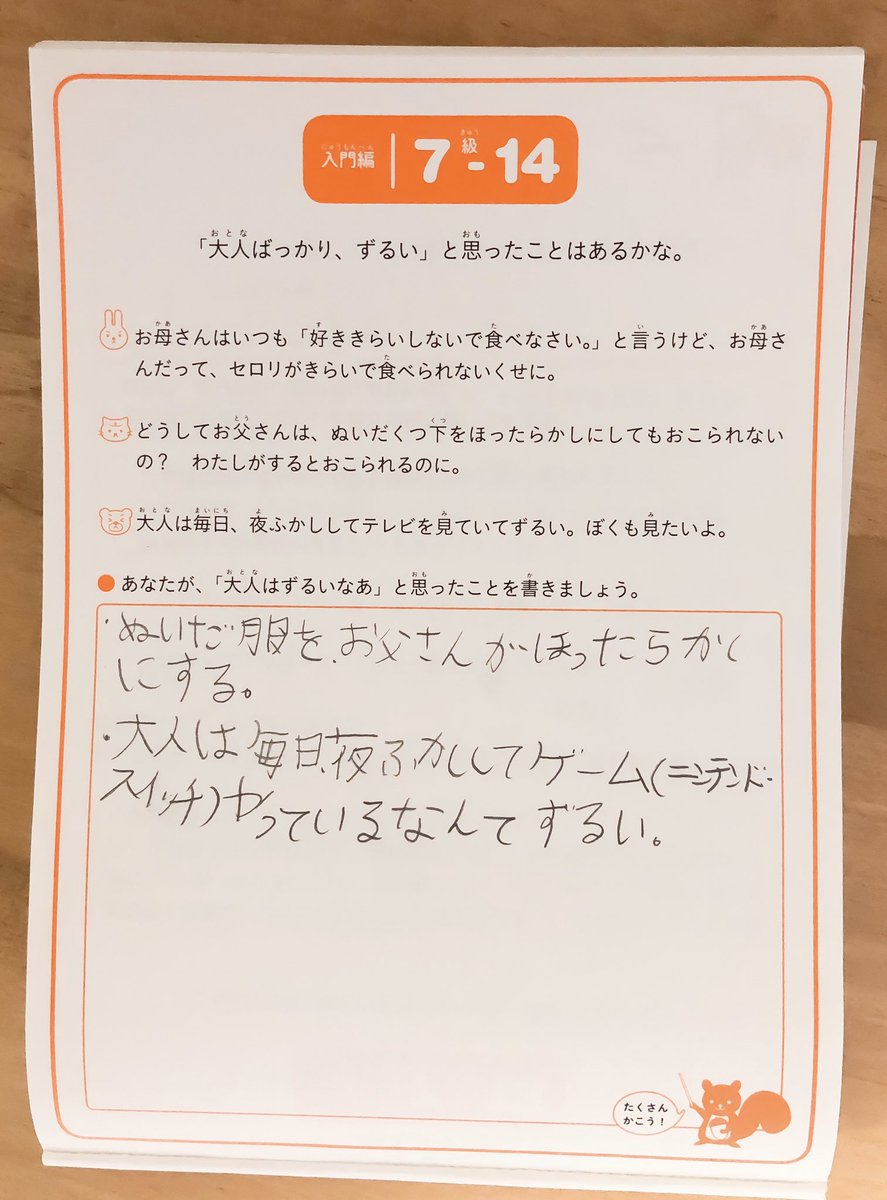 入門編 7級-14
「大人ばっかり、ずるい」と思ったことはあるかな。
お母さんはいつも「好ききらいしないで食べなさい。」と言うけど、お母さ
んだって、セロリがきらいで食べられないくせに。
どうしてお父さんは、ぬいだくつ下をほったらかしにしてもおこられない
の？ わたしがするとおこられるのに。
大人は毎日、夜ふかししてテレビを見ていてずるい。ぼくも見たいよ。
● あなたが、「大人はずるいなあ」と思ったことを書きましょう。
・ぬいだ服を、お父さんがほったらかし
にする。
・大人は毎日、夜ふかししてゲーム(ニンテンドー
スイッチ)やっているなんてずるい。
たくさん
かこう！